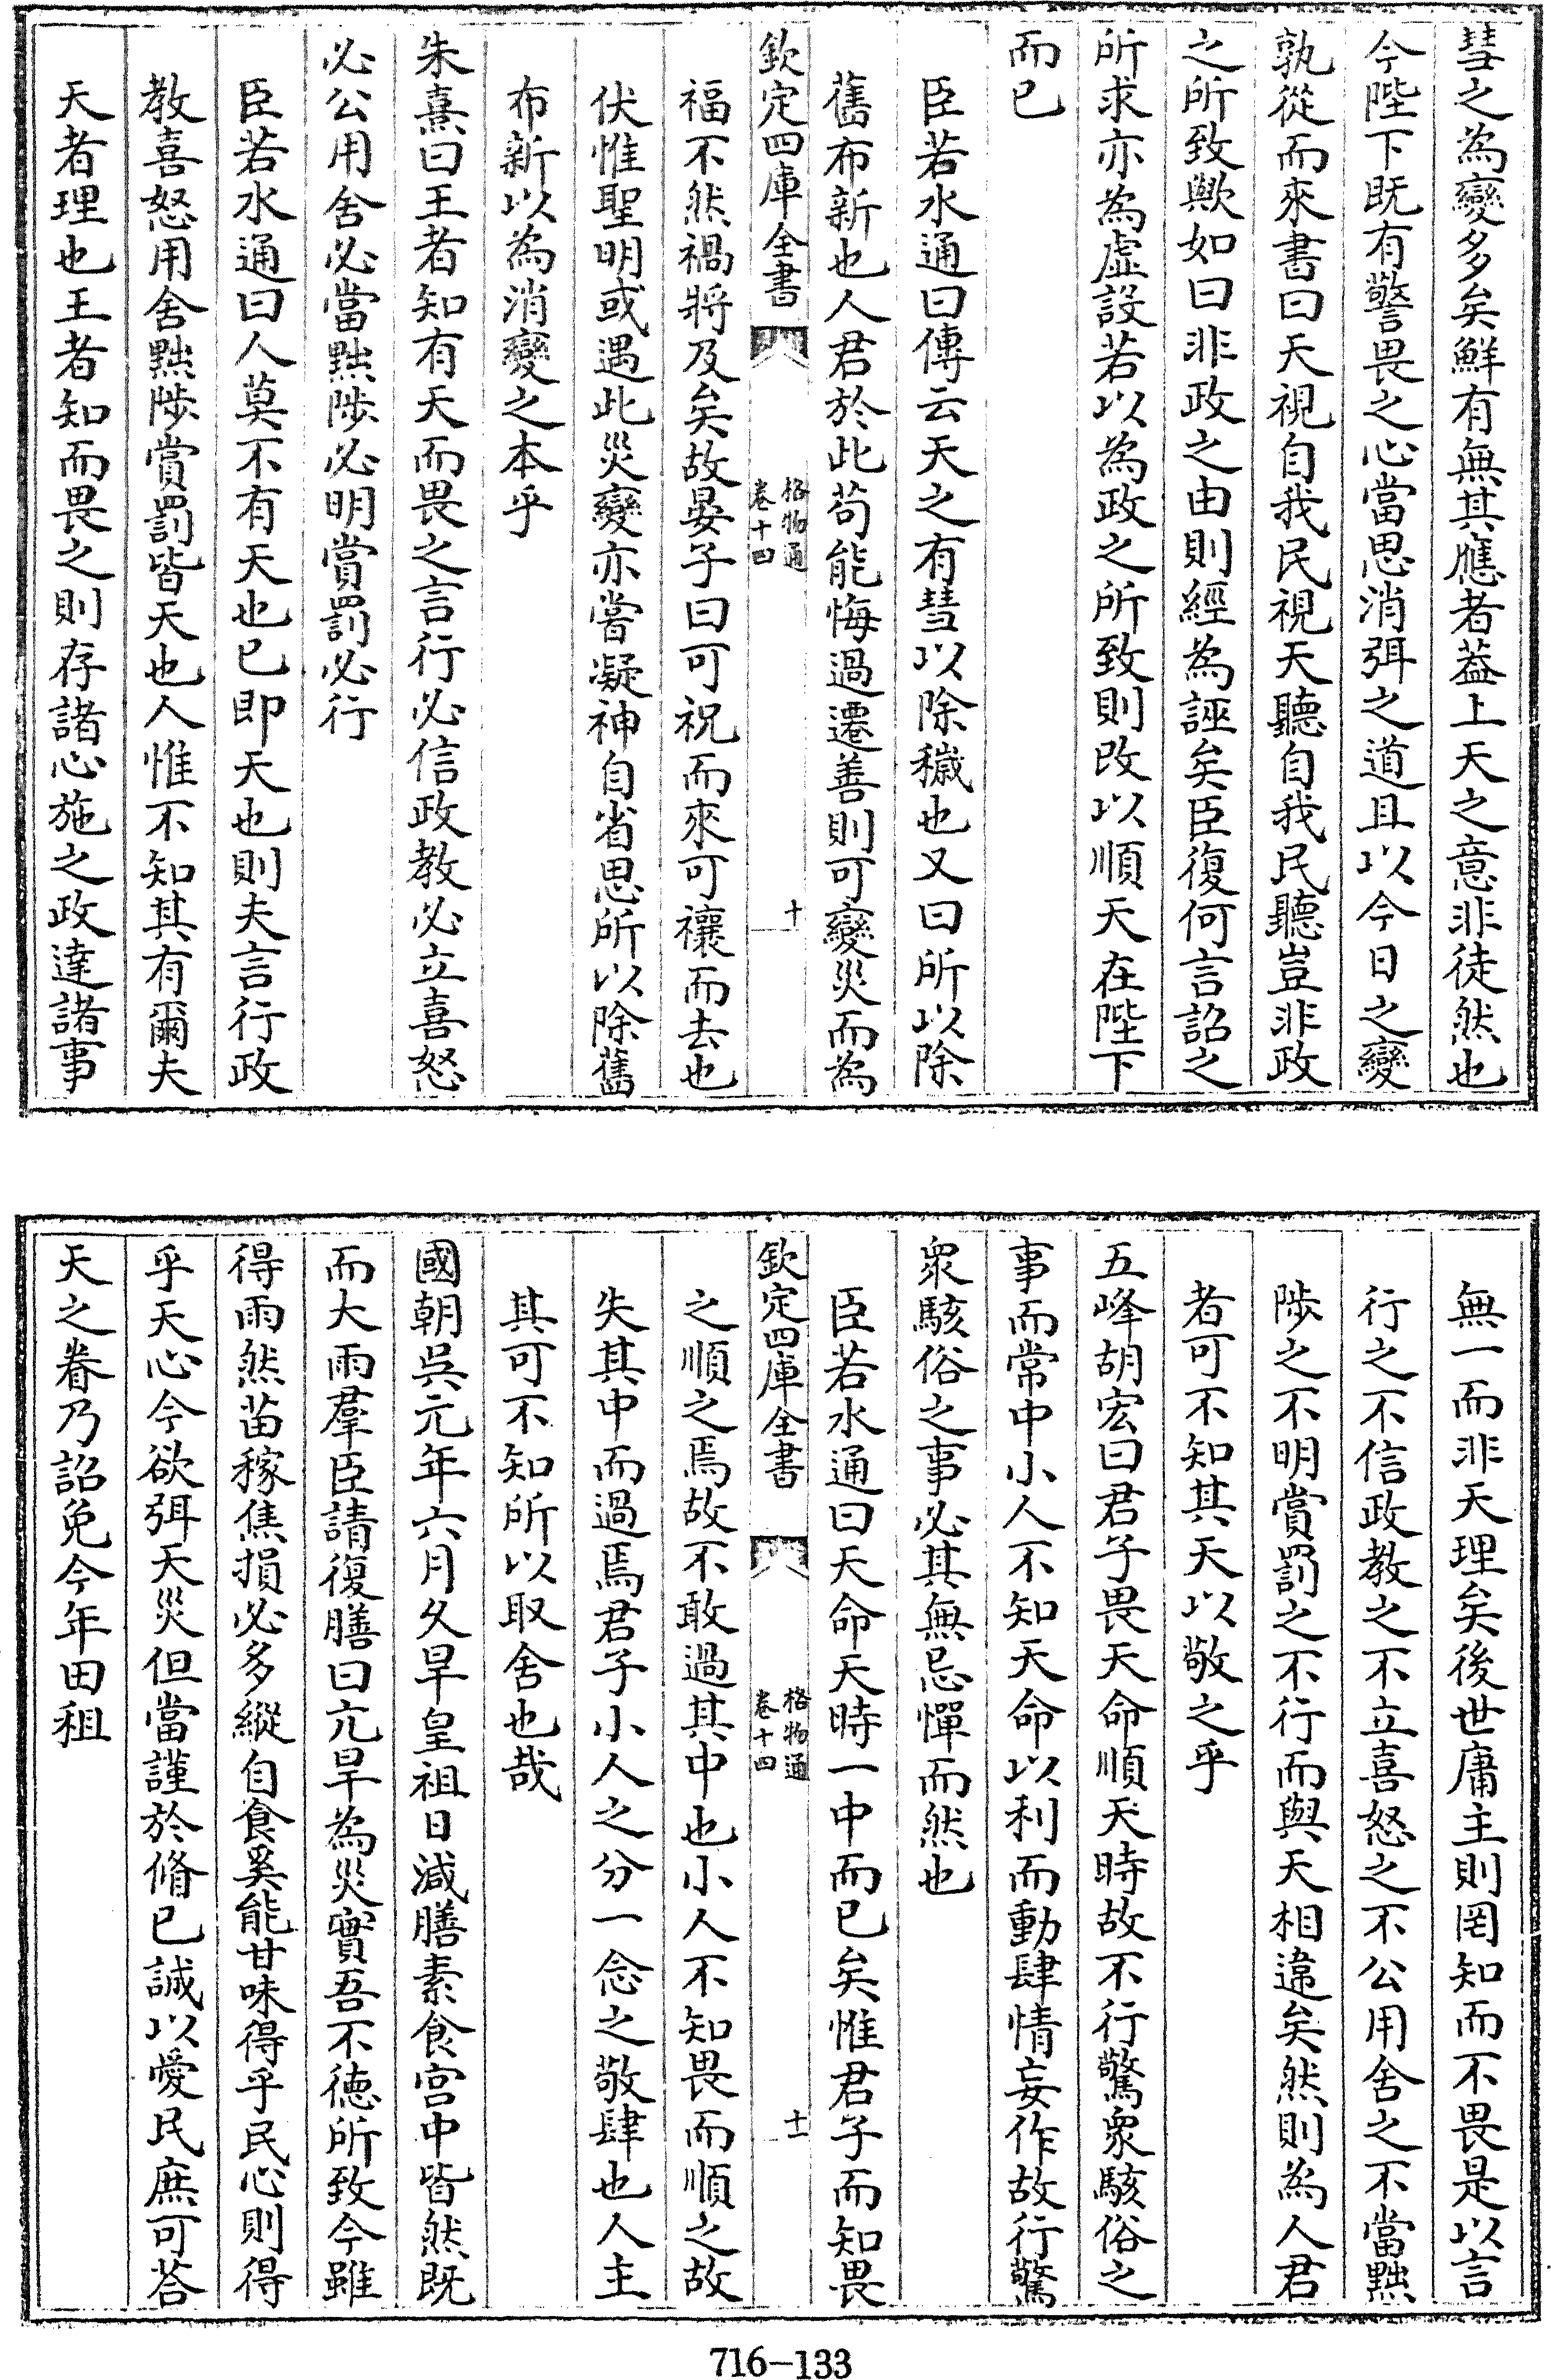 彗之為變多矣鮮有無其應者葢上天之意非徒然也
今陛下既有警畏之心當思消弭之道且以今日之變
孰從而來書曰天視自我民視天聽自我民聽豈非政
之所致歟如曰非政之由則經為誣矣臣復何言詔之
所求亦為虛設若以為政之所致則改以順天在陛下
而已
臣若水通曰傳云天之有彗以除穢也又曰所以除
舊布新也人君於此苟能悔過遷善則可變災而為
欽定四庫全書
格物通
卷十四
十
福不然禍將及矣故晏子曰可祝而來可禳而去也
伏惟聖明或遇此災變亦當凝神自省思所以除舊
布新以為消變之本乎
朱熹曰王者知有天而畏之言行必信政教必立喜怒
必公用舍必當黜陟必明賞罰必行
臣若水通曰人莫不有天也已即天也則夫言行政
教喜怒用舍黜陟賞罰皆天也人惟不知其有爾夫
天者理也王者知而畏之則存諸心施之政達諸事
無一而非天理矣後世庸主則罔知而不畏是以言
行之不信政教之不立喜怒之不公用舍之不當黜
陟之不明賞罰之不行而與天相違矣然則為人君
者可不知其天以敬之乎
五峰胡宏曰君子畏天命順天時故不行驚衆駭俗之
事而常中小人不知天命以利而動肆情妄作故行驚
衆駭俗之事必其無忌憚而然也
臣若水通曰天命天時一中而已矣惟君子而知畏
欽定四庫全書
格物通
卷十四
十一
之順之焉故不敢過其中也小人不知畏而順之故
失其中而過焉君子小人之分一念之敬肆也人主
其可不知所以取舍也哉
國朝吳元年六月久旱皇祖日減膳素食宫中皆然既
而大雨羣臣請復膳曰亢旱為災實吾不徳所致今雖
得雨然苗稼焦損必多縱自食奚能甘味得乎民心則得
乎天心今欲弭天災但當謹於脩已誠以愛民庶可荅
天之眷乃詔免今年田租
716-133